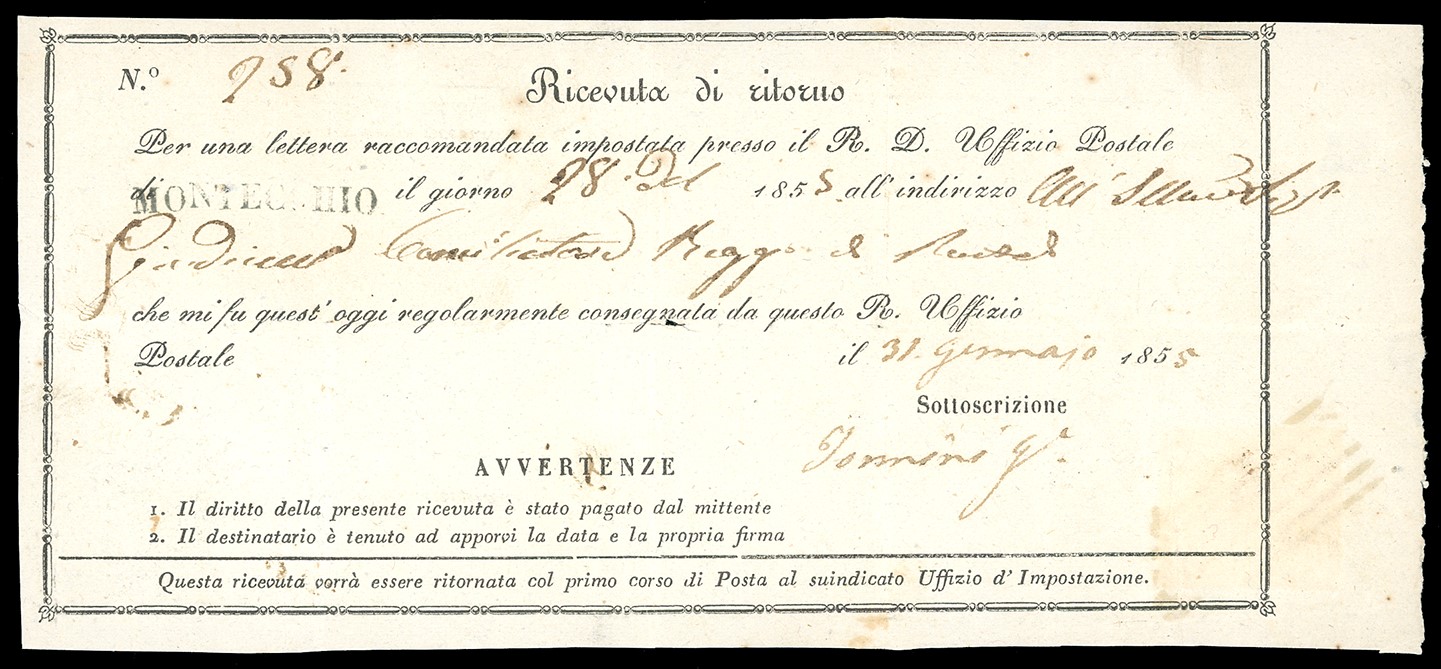 N.º 258.
Ricevuta di ritorno
Per una lettera raccomandata impostata presso il R. D. Uffizio Postale
di MONTECCHIO il giorno 28. 1855 all' indirizzo
Reggio
che mi fu quest' oggi regolarmente consegnata da questo R. Uffizio
Postale il 31. Gennajo 1855
Sottoscrizione
AVVERTENZE
1. Il diritto della presente ricevuta è stato pagato dal mittente
2. Il destinatario è tenuto ad apporvi la data e la propria firma
Questa ricevuta vorrà essere ritornata col primo corso di Posta al suindicato Uffizio d' Impostazione.